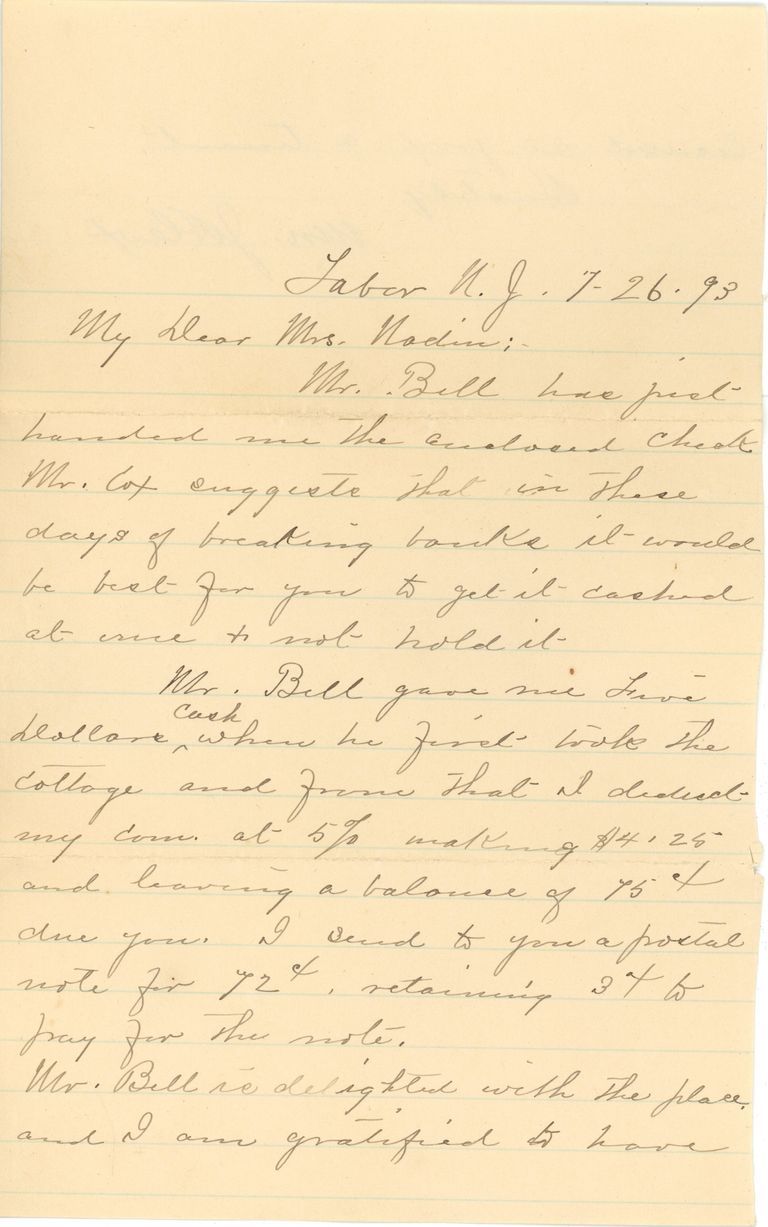 Tabor N. J. 7-26-93
My Dear Mrs. Nodin:-
Mr. Bell has just
handed me the enclosed check
Mr. Cox suggests that in these
days of breaking banks it would
be best for you to get it cashed
at once & not hold it
Mr. Bell gave me Five
cash
Dollars ^ when he first took the
cottage and from that I deduct
my com. at 5% making $4.25
and leaving a balance of 75¢
due you. I send to you a postal
note for 72¢, retaining 3¢ to
pay for the note.
Mr. Bell is delighted with the place,
and I am gratified to have